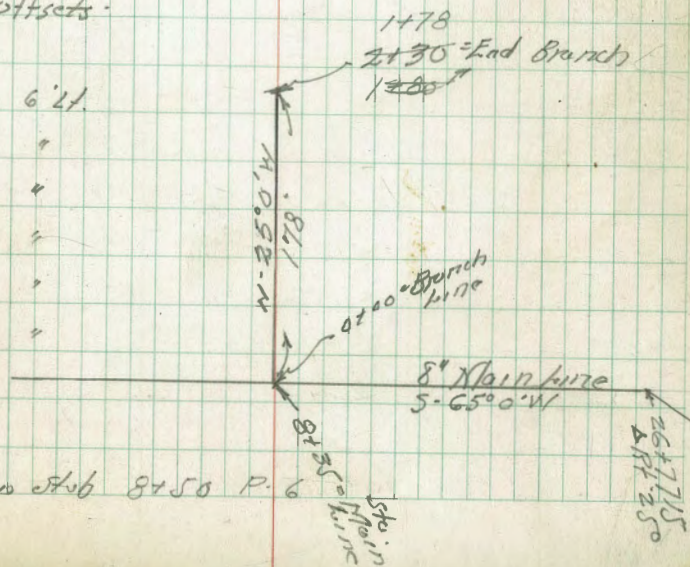 offsets.
1+78
2+30 = End Branch
1+80
6' Lt.
"
"
"
"
"
N-25°0'W
178'
0+00 = Branch
Line
8" Main Line
S-65°0'W
8+35 = Sta
Main
Line
26+77.15
Δ Rt. 25°
stub 8+50 P. 6